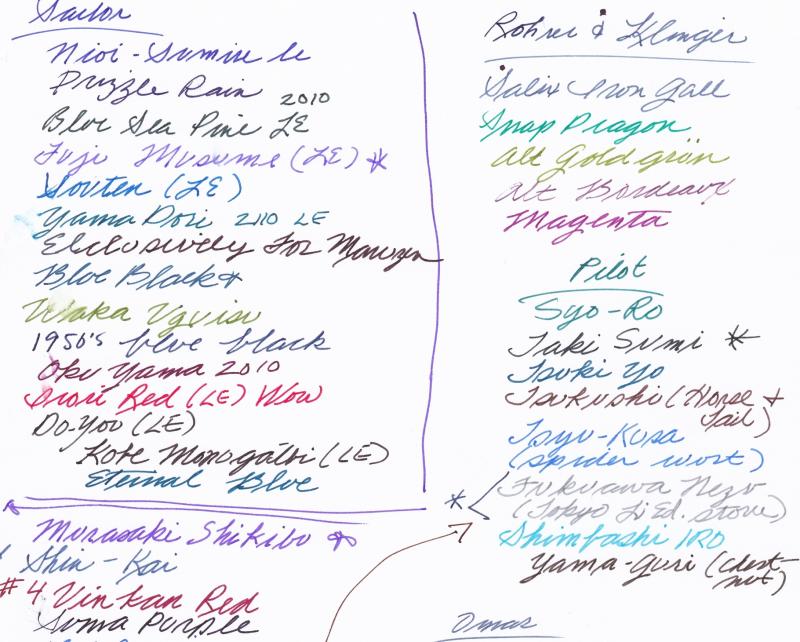 Sailor
Nioi-Sumire le
Puzzle Rain 2010
Blue Sea Pine LE
Fuji Musume (LE) *
Souten (LE)
Yama Dori 2010 LE
Exclusively For Maruzen
Blue Black
Waka Uguisu
1950's blue black
Oku Yama 2010
Irori Red (LE) Wow
Do-You (LE)
Kobe Monogatari (LE)
Eternal Blue
Murasaki Shikibu
Shin-Kai
#4 Vinkan Red
Suma Purple
Rohrer & Klinger
Salix Iron Gall
Snap Dragon
Alt Goldgrün
Alt Bordeaux
Magenta
Pilot
Syo-Ro
Taki Sumi *
Tsuki Yo
Tsukushi (Horse
Tail)
Tsyu-Kusa
(spider wort)
* Fukuawa Nezu
(Tokyo Li Ed. store)
Shimbashi IRO
Yama-guri (chest-
nut)
Omas